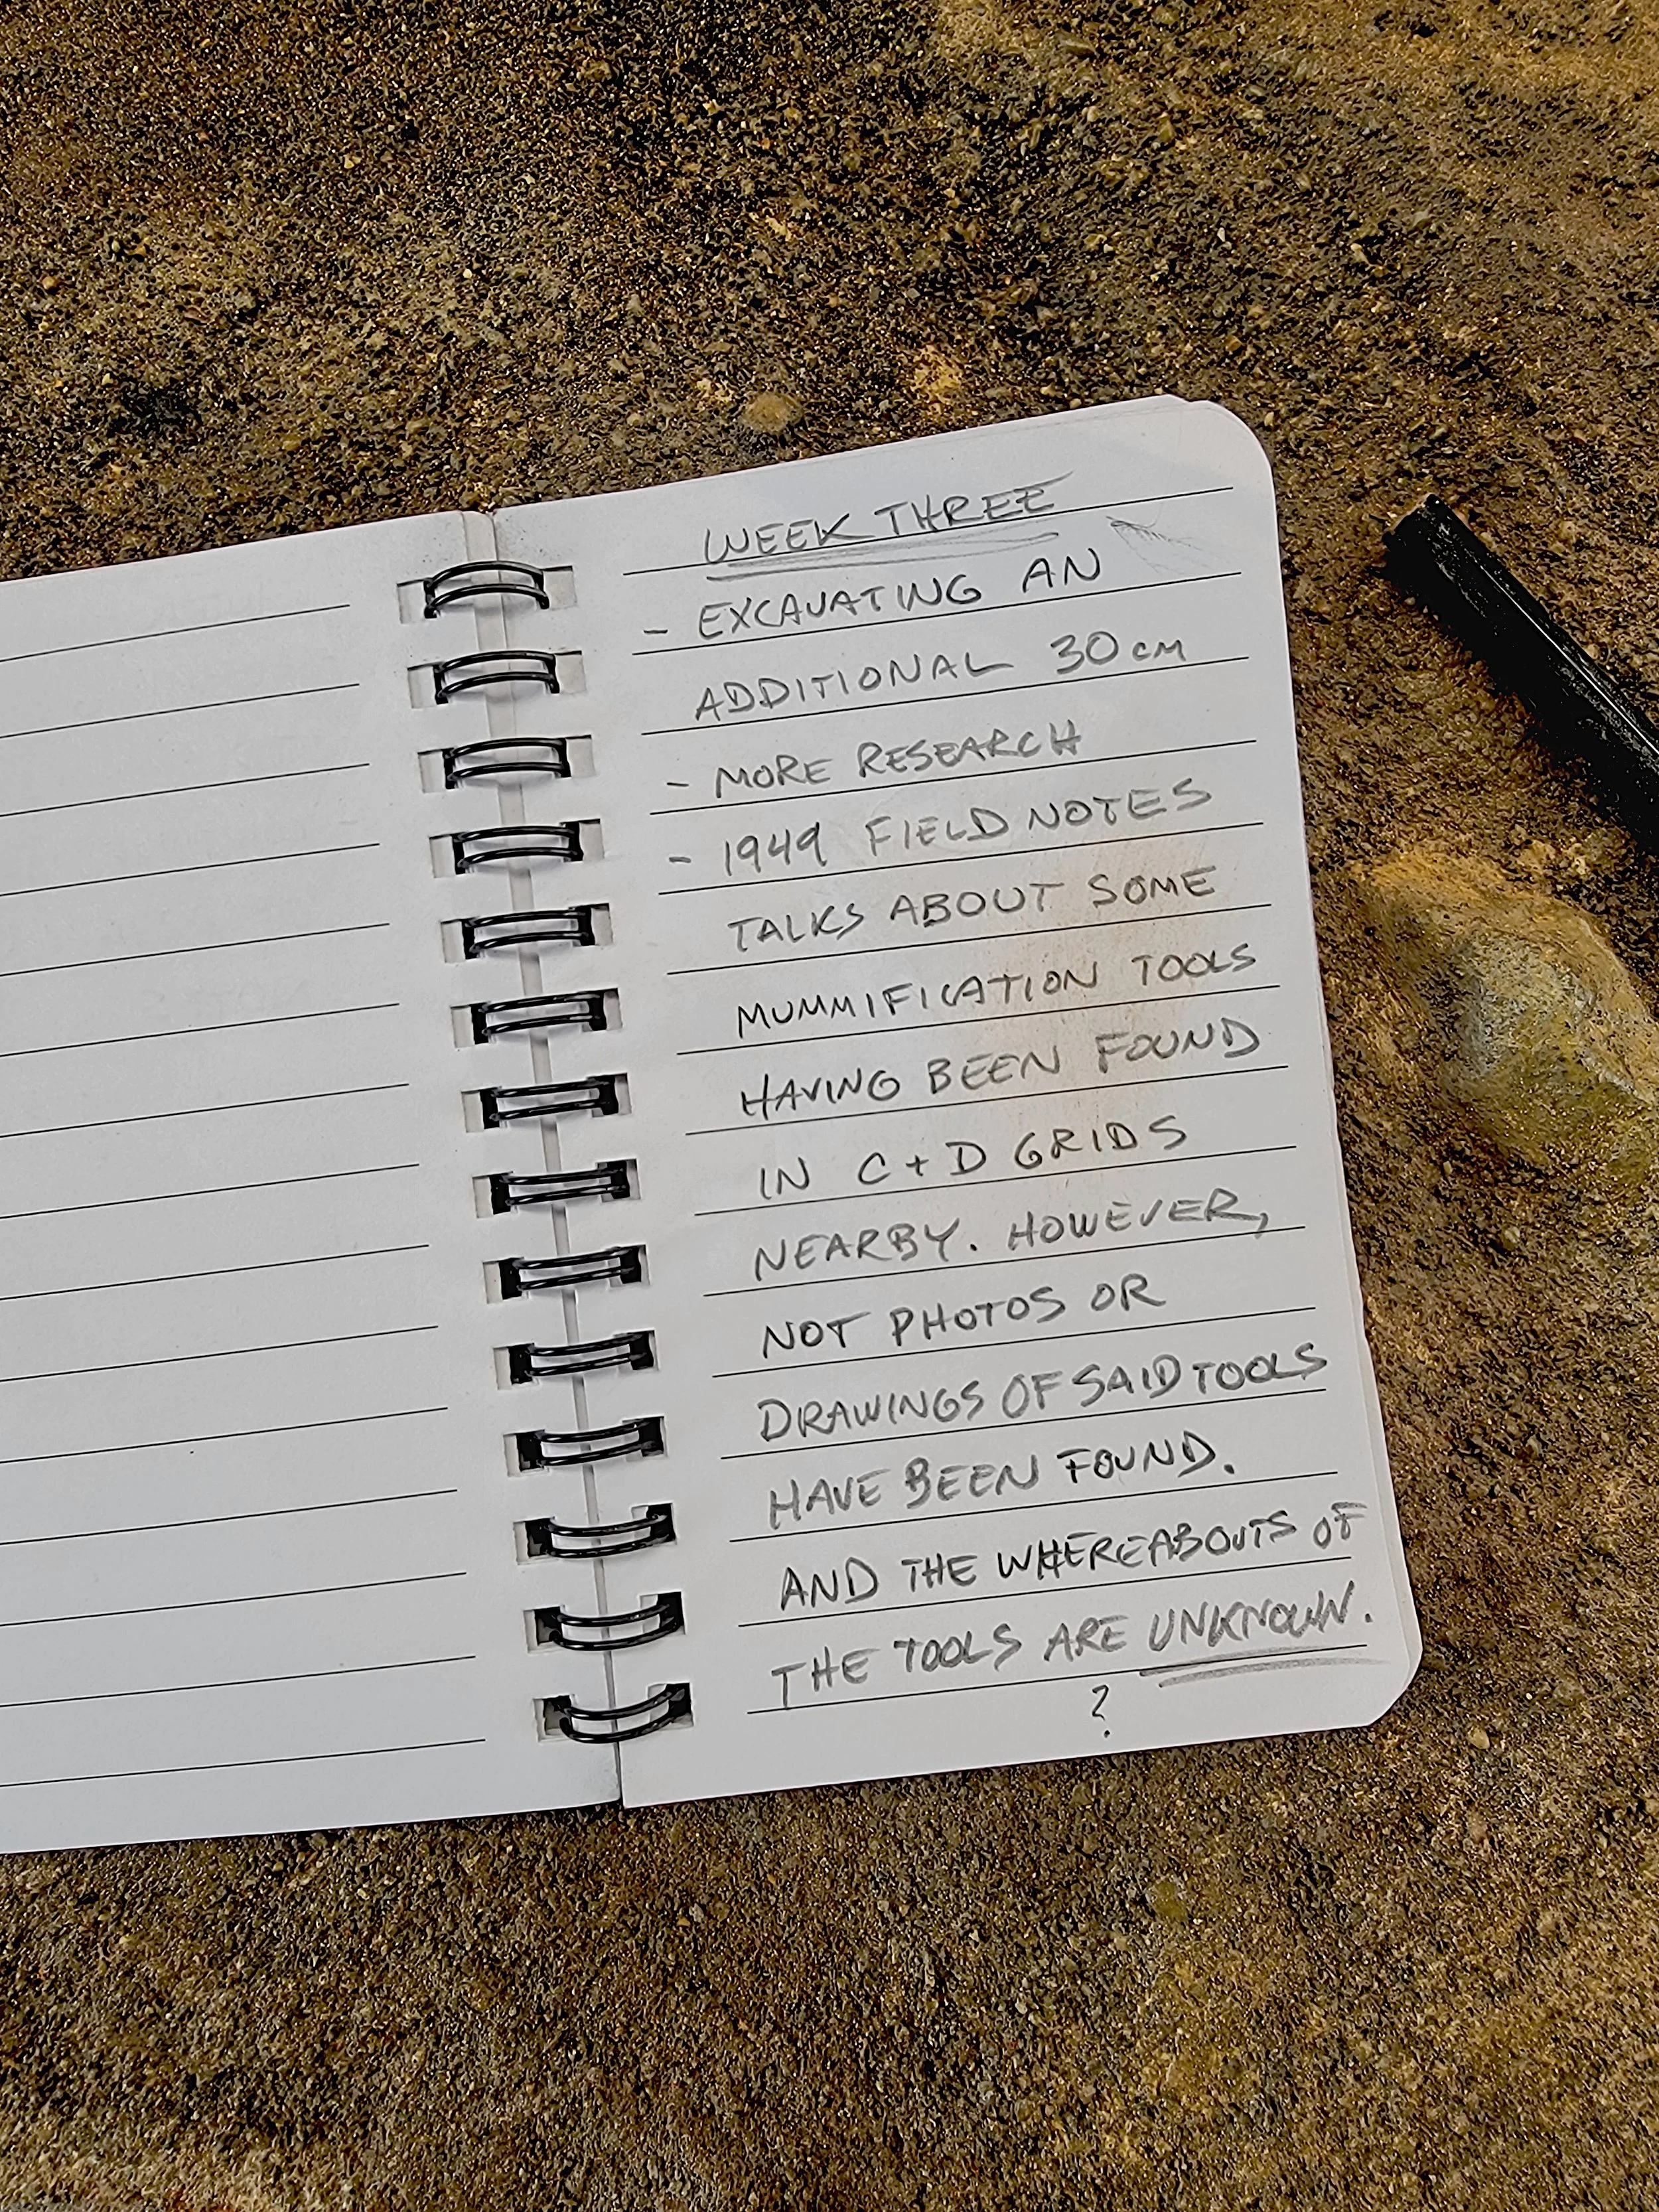 WEEK THREE
- EXCAVATING AN
ADDITIONAL 30 cm
- MORE RESEARCH
- 1949 FIELD NOTES
TALKS ABOUT SOME
MUMMIFICATION TOOLS
HAVING BEEN FOUND
IN C + D GRIDS
NEARBY. HOWEVER,
NOT PHOTOS OR
DRAWINGS OF SAID TOOLS
HAVE BEEN FOUND.
AND THE WHEREABOUTS OF
THE TOOLS ARE UNKNOWN.
?